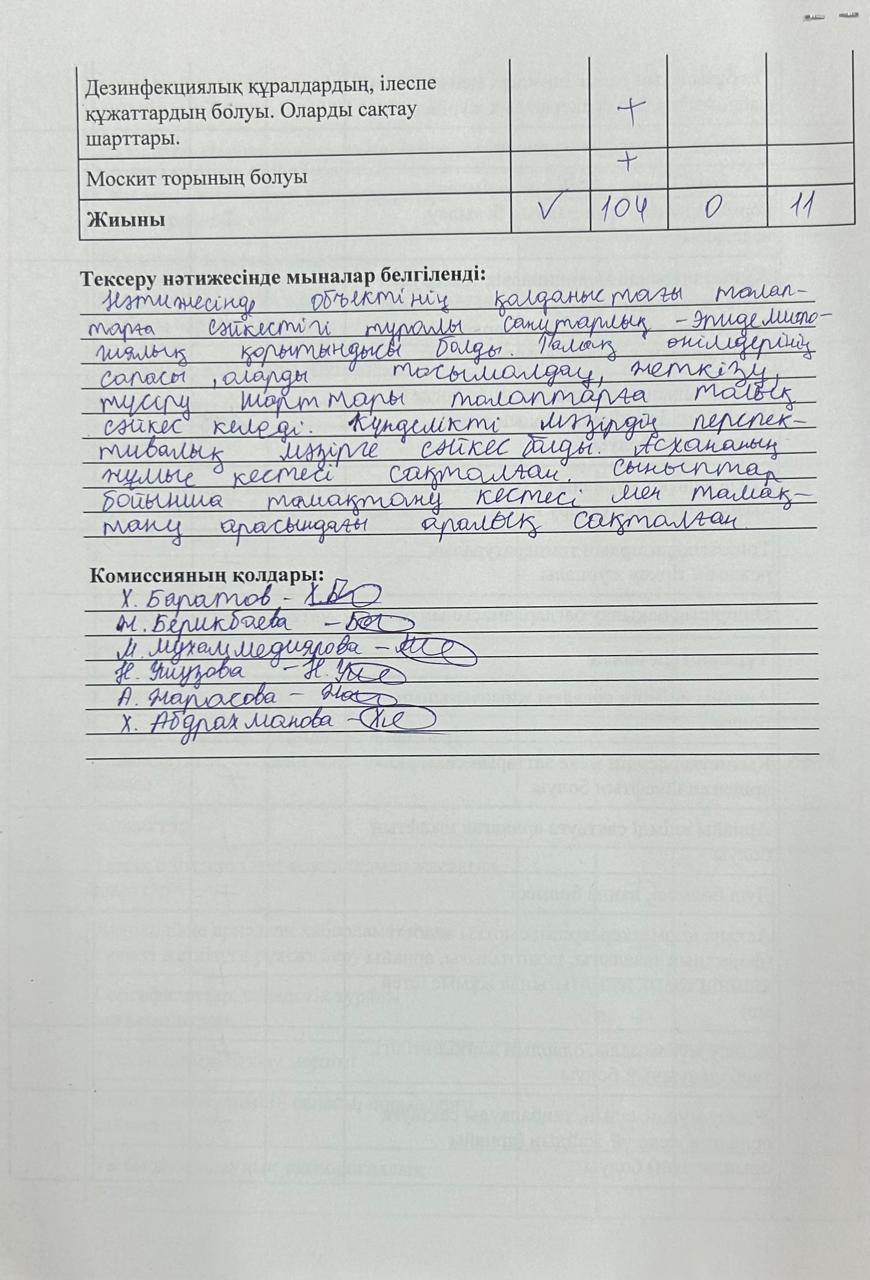 Дезинфекциялық құралдардың, ілеспе
құжаттардың болуы. Оларды сақтау +
шарттары.
Москит торының болуы +
Жиыны √ 104 0 11
Тексеру нәтижесінде мыналар белгіленді:
Нәтижесінде объектінің қолданыстағы талап-
тарға сәйкестігі туралы санитарлық-эпидемиоло-
гиялық қорытындысы болды. Тамақ өнімдерінің
сапасы, оларды тасымалдау, жеткізу,
түсіру шарттары талаптарға толық
сәйкес келеді. Күнделікті мәзірдің перспек-
тивалық мәзірге сәйкес болды. Асхананың
жұмыс кестесі сақталған. Сыныптар
бойынша тамақтану кестесі мен тамақ-
тану арасындағы аралық сақталған.
Комиссияның қолдары:
Х. Баратов -
Н. Берикбаева -
М. Мухаммедиярова -
Н.
А. Нарасова -
Х. Абдрахманова -